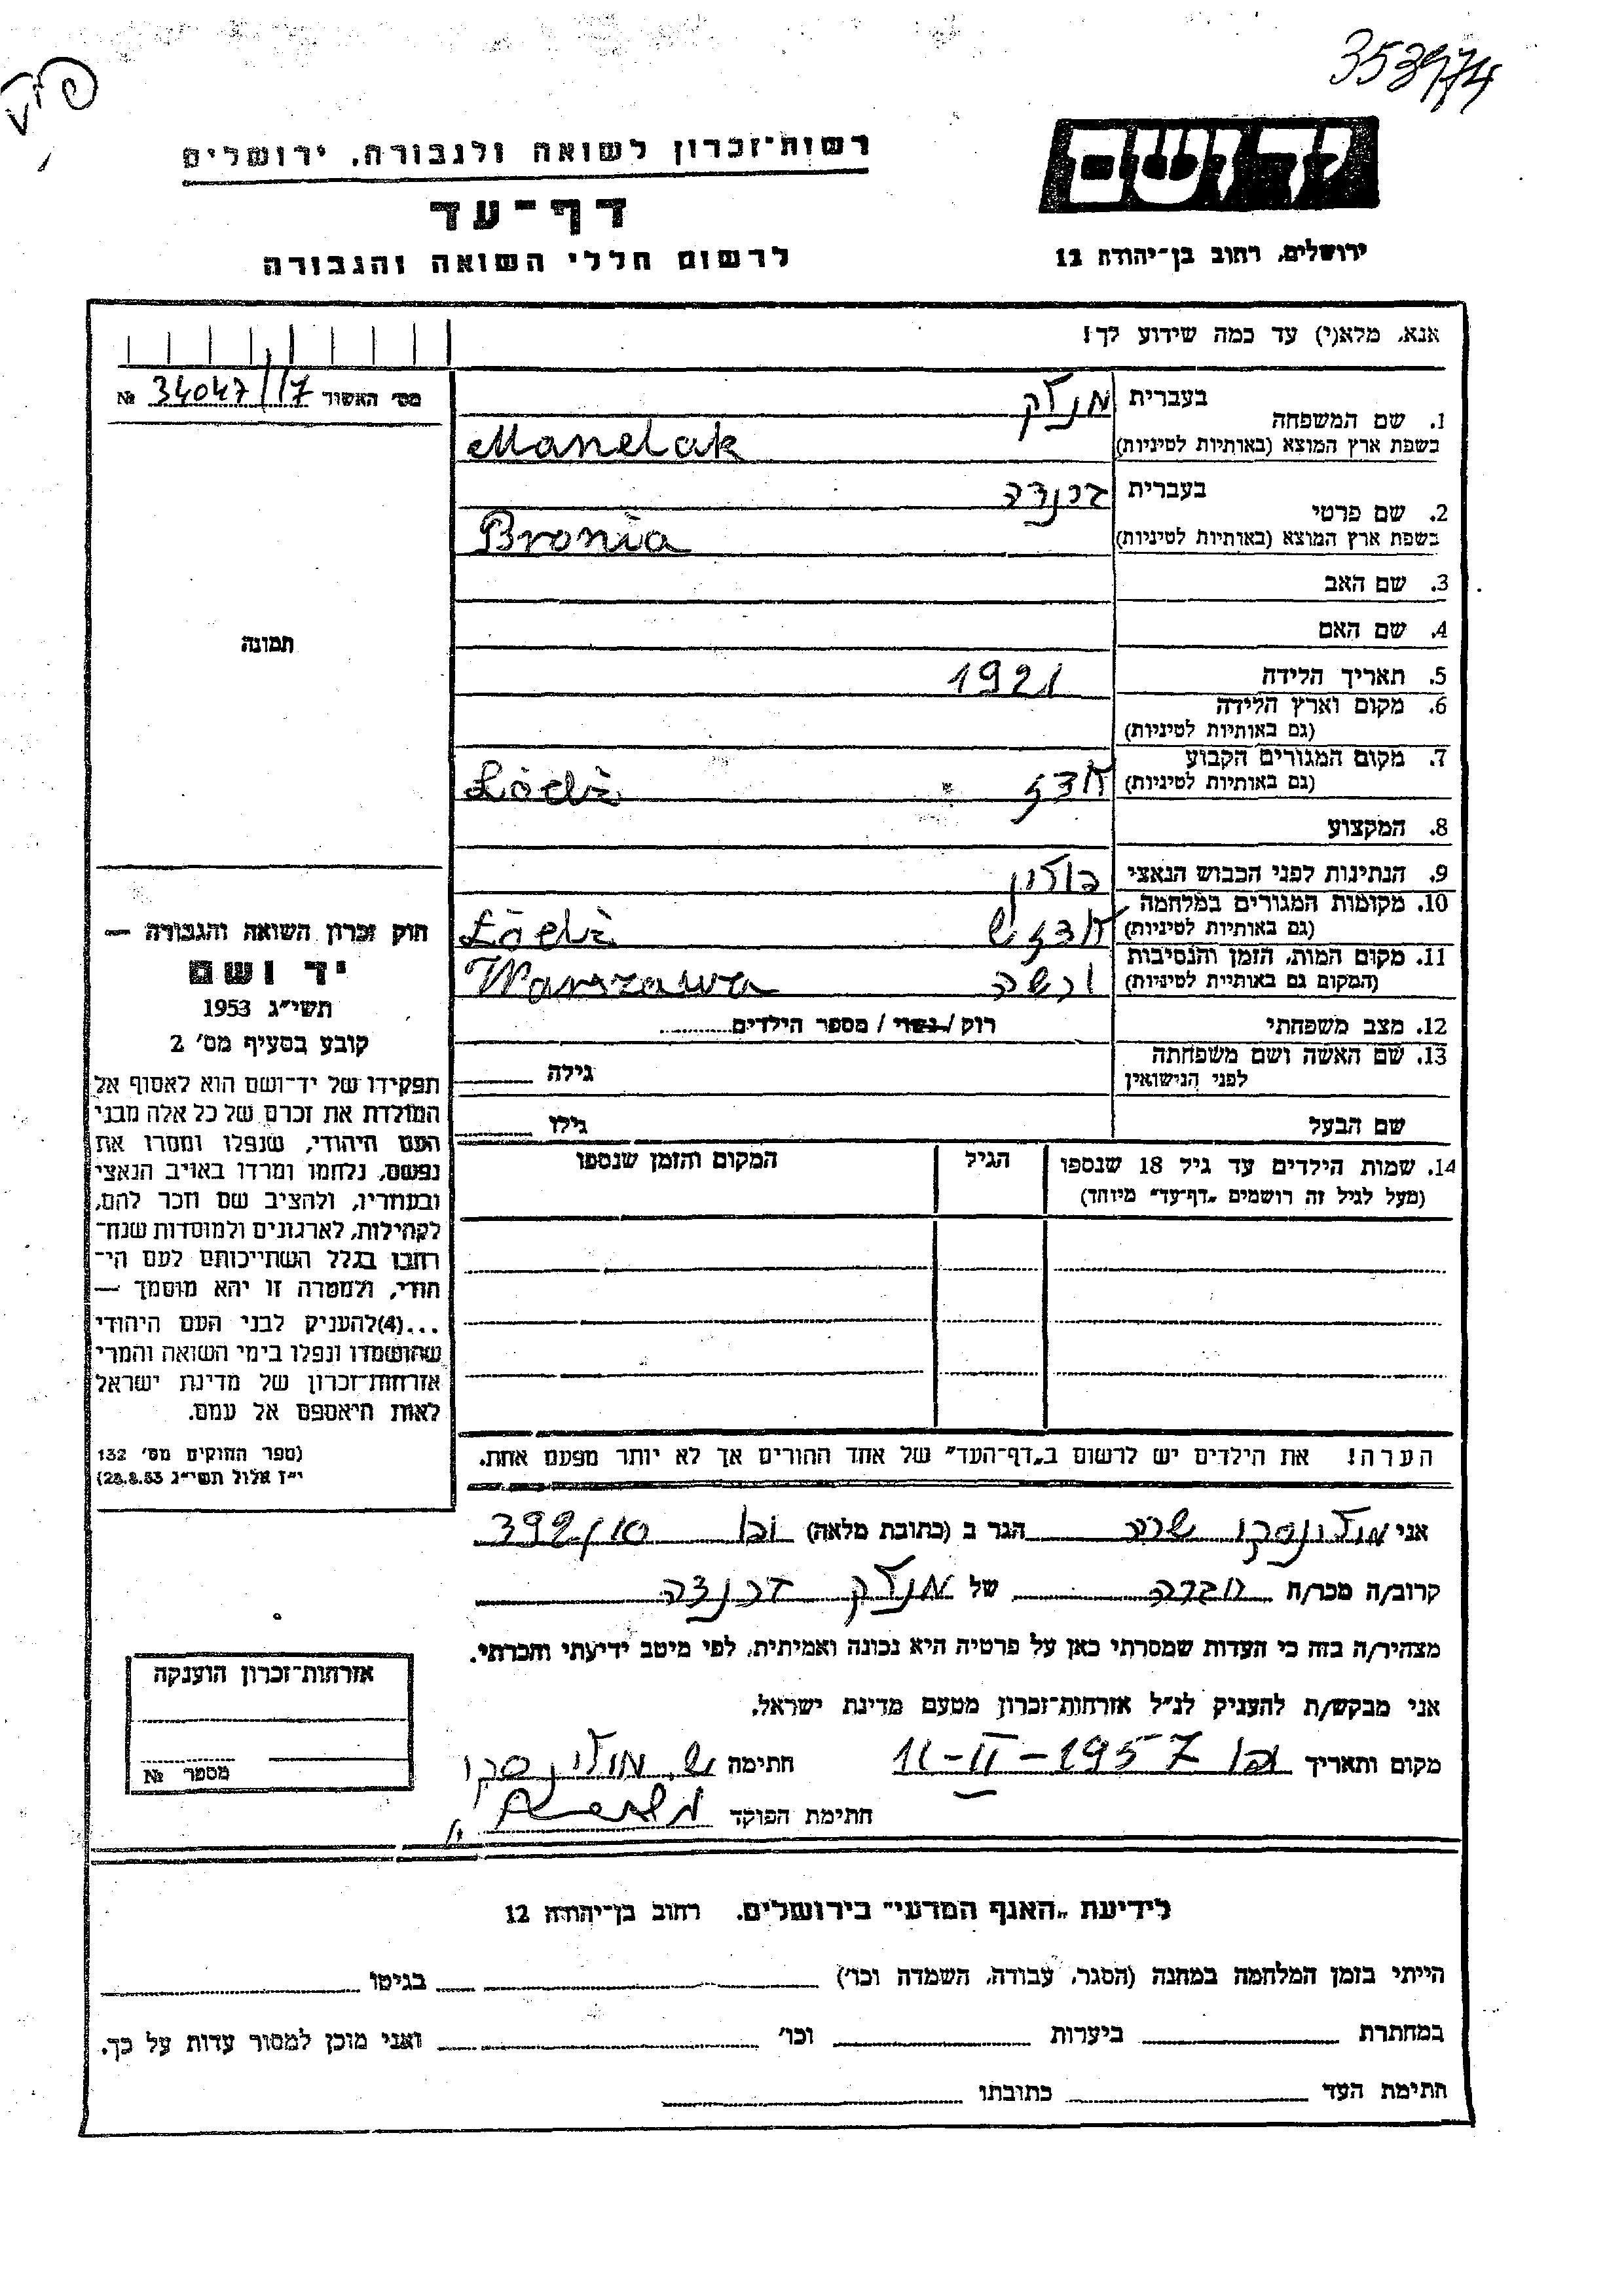 353974
רשות־זכרון לשואה ולגבורה, ירושלים
יד ושם
דף־עד
ירושלים, רחוב בן־יהודה 12
לרשום חללי השואה והגבורה
אנא, מלא(י) עד כמה שידוע לך!
מס׳ האשור 34047/17 №
1. שם המשפחה
בעברית
בשפת ארץ המוצא (באותיות לטיניות)
Manelak
2. שם פרטי
בעברית
בשפת ארץ המוצא (באותיות לטיניות)
Bronia
3. שם האב
4. שם האם
תמונה
5. תאריך הלידה 1921
6. מקום וארץ הלידה
(גם באותיות לטיניות)
7. מקום המגורים הקבוע
(גם באותיות לטיניות) לודז Łódź
8. המקצוע
9. הנתינות לפני הכבוש הנאצי פולין
10. מקומות המגורים במלחמה
(גם באותיות לטיניות) Łódź
11. מקום המות, הזמן והנסיבות
(המקום גם באותיות לטיניות) ורשה Warszawa
12. מצב משפחתי רוק / נשוי / מספר הילדים
13. שם האשה ושם משפחתה
לפני הנישואין
גילה
שם הבעל גילו
14. שמות הילדים עד גיל 18 שנספו הגיל המקום והזמן שנספו
(מעל לגיל זה רושמים „דף־עד״ מיוחד)
חוק זכרון השואה והגבורה —
יד ושם
תשי״ג 1953
קובע בסעיף מס׳ 2
תפקידו של יד־ושם הוא לאסוף אל
המולדת את זכרם של כל אלה מבני
העם היהודי, שנפלו ומסרו את
נפשם, נלחמו ומרדו באויב הנאצי
ובעוזריו, ולהציב שם וזכר להם,
לקהילות, לארגונים ולמוסדות שנח־
רבו בגלל השתייכותם לעם הי־
הודי, ולמטרה זו יהא מוסמך —
...(4)להעניק לבני העם היהודי
שהושמדו ונפלו בימי השואה והמרי
אזרחות־זכרון של מדינת ישראל
לאות היאספם אל עמם.
(ספר החוקים מס׳ 132
י״ז אלול תשי״ג 28.8.53)
הערה! את הילדים יש לרשום ב„דף־העד״ של אחד ההורים אך לא יותר מפעם אחת.
אני שרה הגר ב (כתובת מלאה) 392/10
קרוב/ה מכר/ה חברה של מנלק
מצהיר/ה בזה כי העדות שמסרתי כאן על פרטיה היא נכונה ואמיתית, לפי מיטב ידיעתי והכרתי.
אני מבקש/ת להעניק לנ״ל אזרחות־זכרון מטעם מדינת ישראל.
מקום ותאריך 11-II-1957 חתימה
חתימת הפוקד
אזרחות־זכרון הוענקה
מספר №
לידיעת „האגף המדעי״ בירושלים. רחוב בן־יהודה 12
הייתי בזמן המלחמה במחנה (הסגר, עבודה, השמדה וכו׳) בגיטו
במחתרת ביערות וכו׳ ואני מוכן למסור עדות על כך.
חתימת העד כתובתו